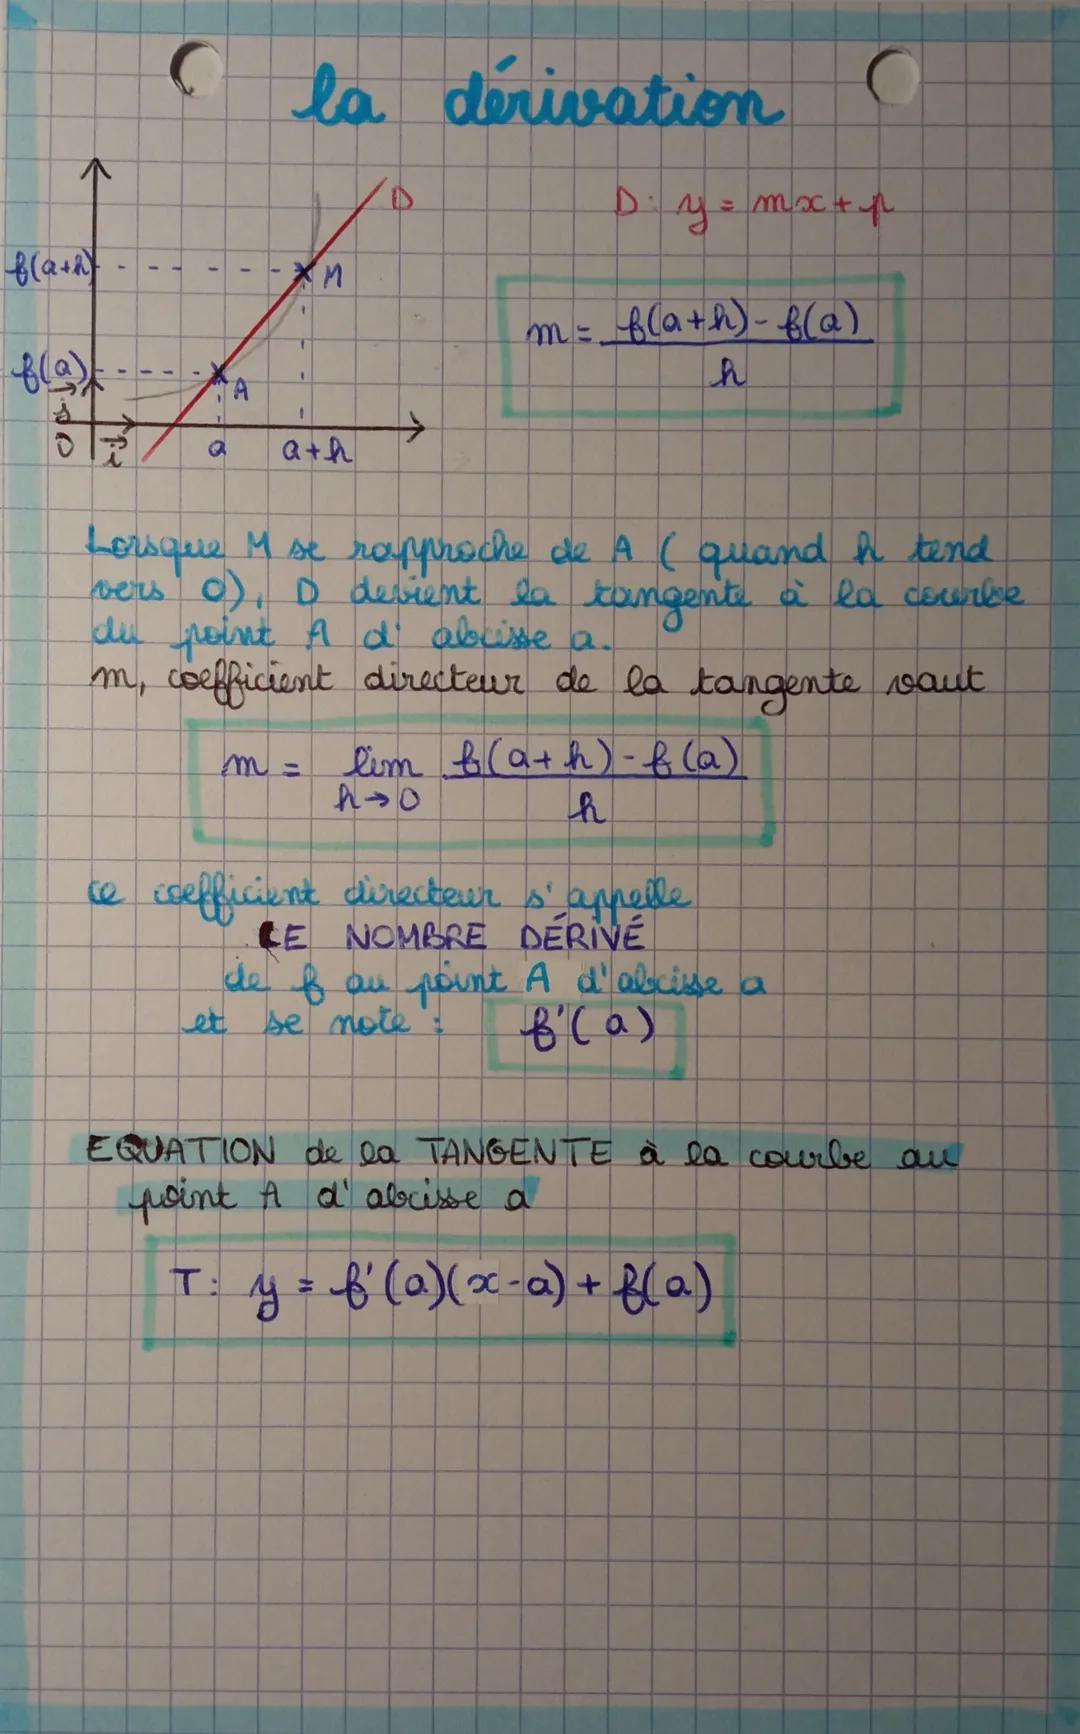 la dérivation
D
D: y = mx + p
f(a+h)
M
m = f(a+h) - f(a)
h
f(a)
A
j
O
i
a
a+h
Lorsque M se rapproche de A ( quand h tend
vers 0), D devient la tangente à la courbe
du point A d' abcisse a.
m, coefficient directeur de la tangente vaut
m = lim f(a+h) - f(a)
h→0 h
ce coefficient directeur s'appelle
LE NOMBRE DÉRIVÉ
de f au point A d'abcisse a
et se note : f'(a)
EQUATION de la TANGENTE à la courbe au
point A d'abcisse a
T: y = f'(a)(x-a) + f(a)